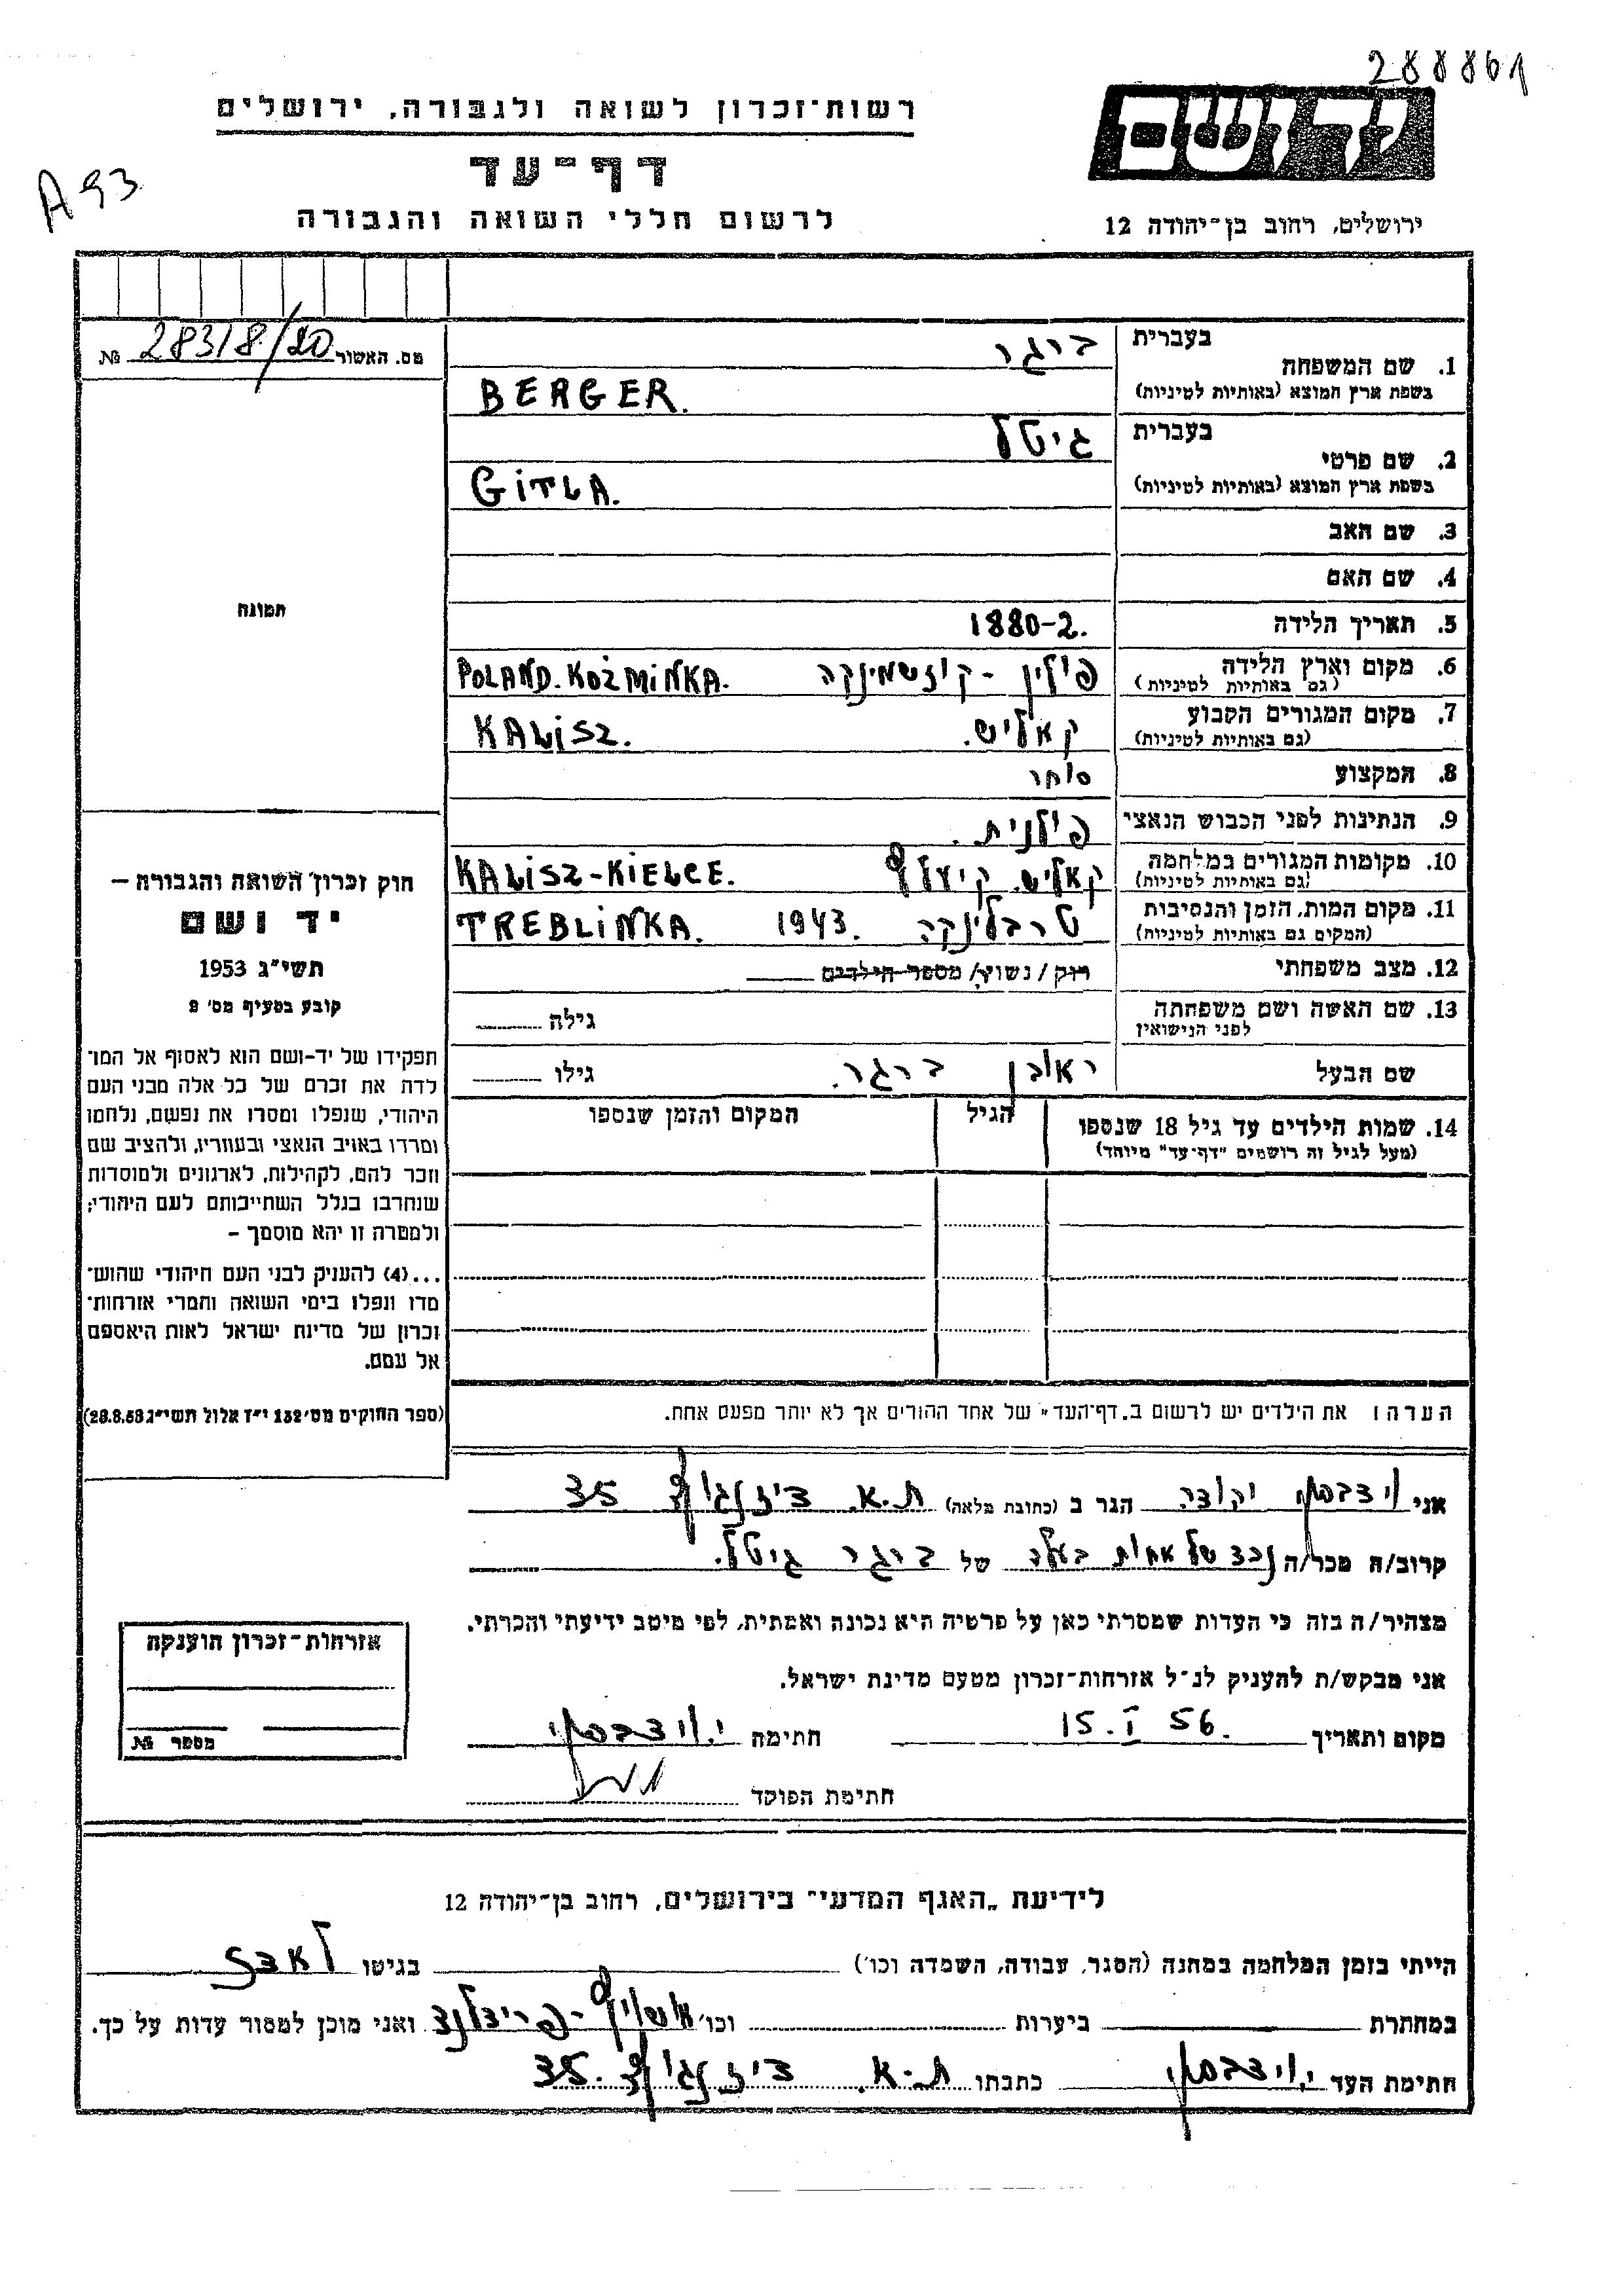 288861
רשות־זכרון לשואה ולגבורה, ירושלים
יד ושם
דף־עד
A 93
לרשום חללי השואה והגבורה
ירושלים, רחוב בן־יהודה 12
מס. האשור 28318/20 №
1. שם המשפחה
בעברית ברגר
בשפת ארץ המוצא (באותיות לטיניות) BERGER.
2. שם פרטי
בעברית גיטל
בשפת ארץ המוצא (באותיות לטיניות) GITLA.
3. שם האב
4. שם האם
5. תאריך הלידה 1880-2.
6. מקום וארץ הלידה (גם באותיות לטיניות) פולין - קוזשמינקה POLAND. KOŻMINKA.
7. מקום המגורים הקבוע (גם באותיות לטיניות) קאליש. KALISZ.
8. המקצוע סוחר
9. הנתינות לפני הכבוש הנאצי פולנית.
10. מקומות המגורים במלחמה (גם באותיות לטיניות) קאליש. קיעלץ KALISZ-KIELCE.
11. מקום המות, הזמן והנסיבות (המקום גם באותיות לטיניות) טרבלינקה 1943. TREBLINKA.
12. מצב משפחתי רוק / נשוי / מספר הילדים
13. שם האשה ושם משפחתה לפני הנישואין גילה
שם הבעל ראובן ברגר. גילו
14. שמות הילדים עד גיל 18 שנספו (מעל לגיל זה רושמים "דף־עד" מיוחד) הגיל המקום והזמן שנספו
הערה: את הילדים יש לרשום ב"דף־העד" של אחד ההורים אך לא יותר מפעם אחת.
תמונה
חוק זכרון השואה והגבורה —
יד ושם
תשי"ג 1953
קובע בסעיף מס' 2
תפקידו של יד־ושם הוא לאסוף אל המו־
לדת את זכרם של כל אלה מבני העם
היהודי, שנפלו ומסרו את נפשם, נלחמו
ומרדו באויב הנאצי ובעוזריו, ולהציב שם
וזכר להם, לקהילות, לארגונים ולמוסדות
שנחרבו בגלל השתייכותם לעם היהודי;
ולמטרה זו יהא מוסמך –
...(4) להעניק לבני העם היהודי שהוש־
מדו ונפלו בימי השואה והמרי אזרחות־
זכרון של מדינת ישראל לאות היאספם
אל עמם.
(ספר החוקים מס' 132 י"ז אלול תשי"ג 28.8.53)
אני יהודה הגר ב (כתובת מלאה) ת.א. דיזנגוף 35
קרוב/ה מכר/ה נכד של אחות בעלה של ברגר גיטל.
מצהיר/ה בזה כי העדות שמסרתי כאן על פרטיה היא נכונה ואמתית, לפי מיטב ידיעתי והכרתי.
אני מבקש/ת להעניק לנ"ל אזרחות־זכרון מטעם מדינת ישראל.
מקום ותאריך 15. I 56. חתימה
חתימת הפוקד
אזרחות־זכרון הוענקה
מספר №
לידיעת "האגף המדעי" בירושלים, רחוב בן־יהודה 12
הייתי בזמן המלחמה במחנה (הסגר, עבודה, השמדה וכו') בגיטו לאדז
במחתרת ביערות וכו' אושויץ - פרידלנד ואני מוכן למסור עדות על כך.
חתימת העד כתבתו ת.א. דיזנגוף 35.